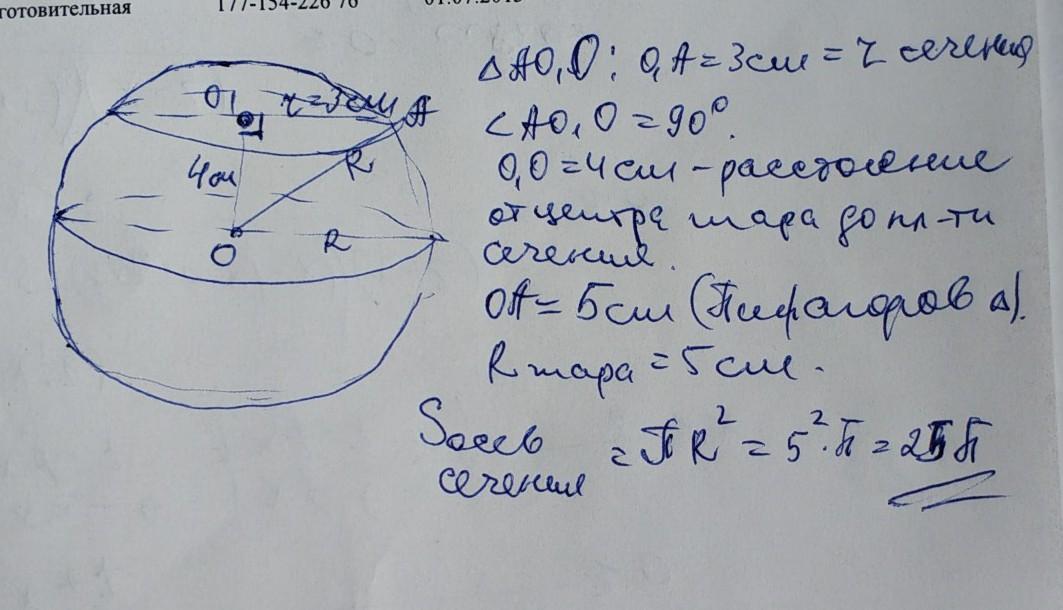 готовительная 177-154-226 76 01.07.2015
O₁ r=3см A
4см R
O R
△AO₁O: O₁A=3см=r сечения
<AO₁O=90°.
O₁O=4см - расстояние
от центра шара до пл-ти
сечения.
OA=5см (Пифагоров △).
R шара = 5см.
Sосев = πR² = 5²·π = 25π
сечения